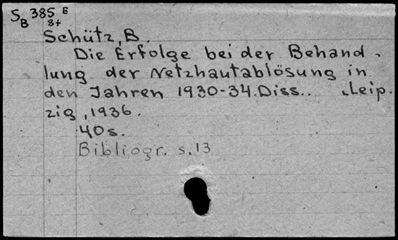 S 385 E
B 8+
Schütz, B.
Die Erfolge bei der Behand-
lung der Netzhautablösung in
den Jahren 1930-34. Diss.. Leip.
zig, 1936.
40s.
Bibliogr. s. 13